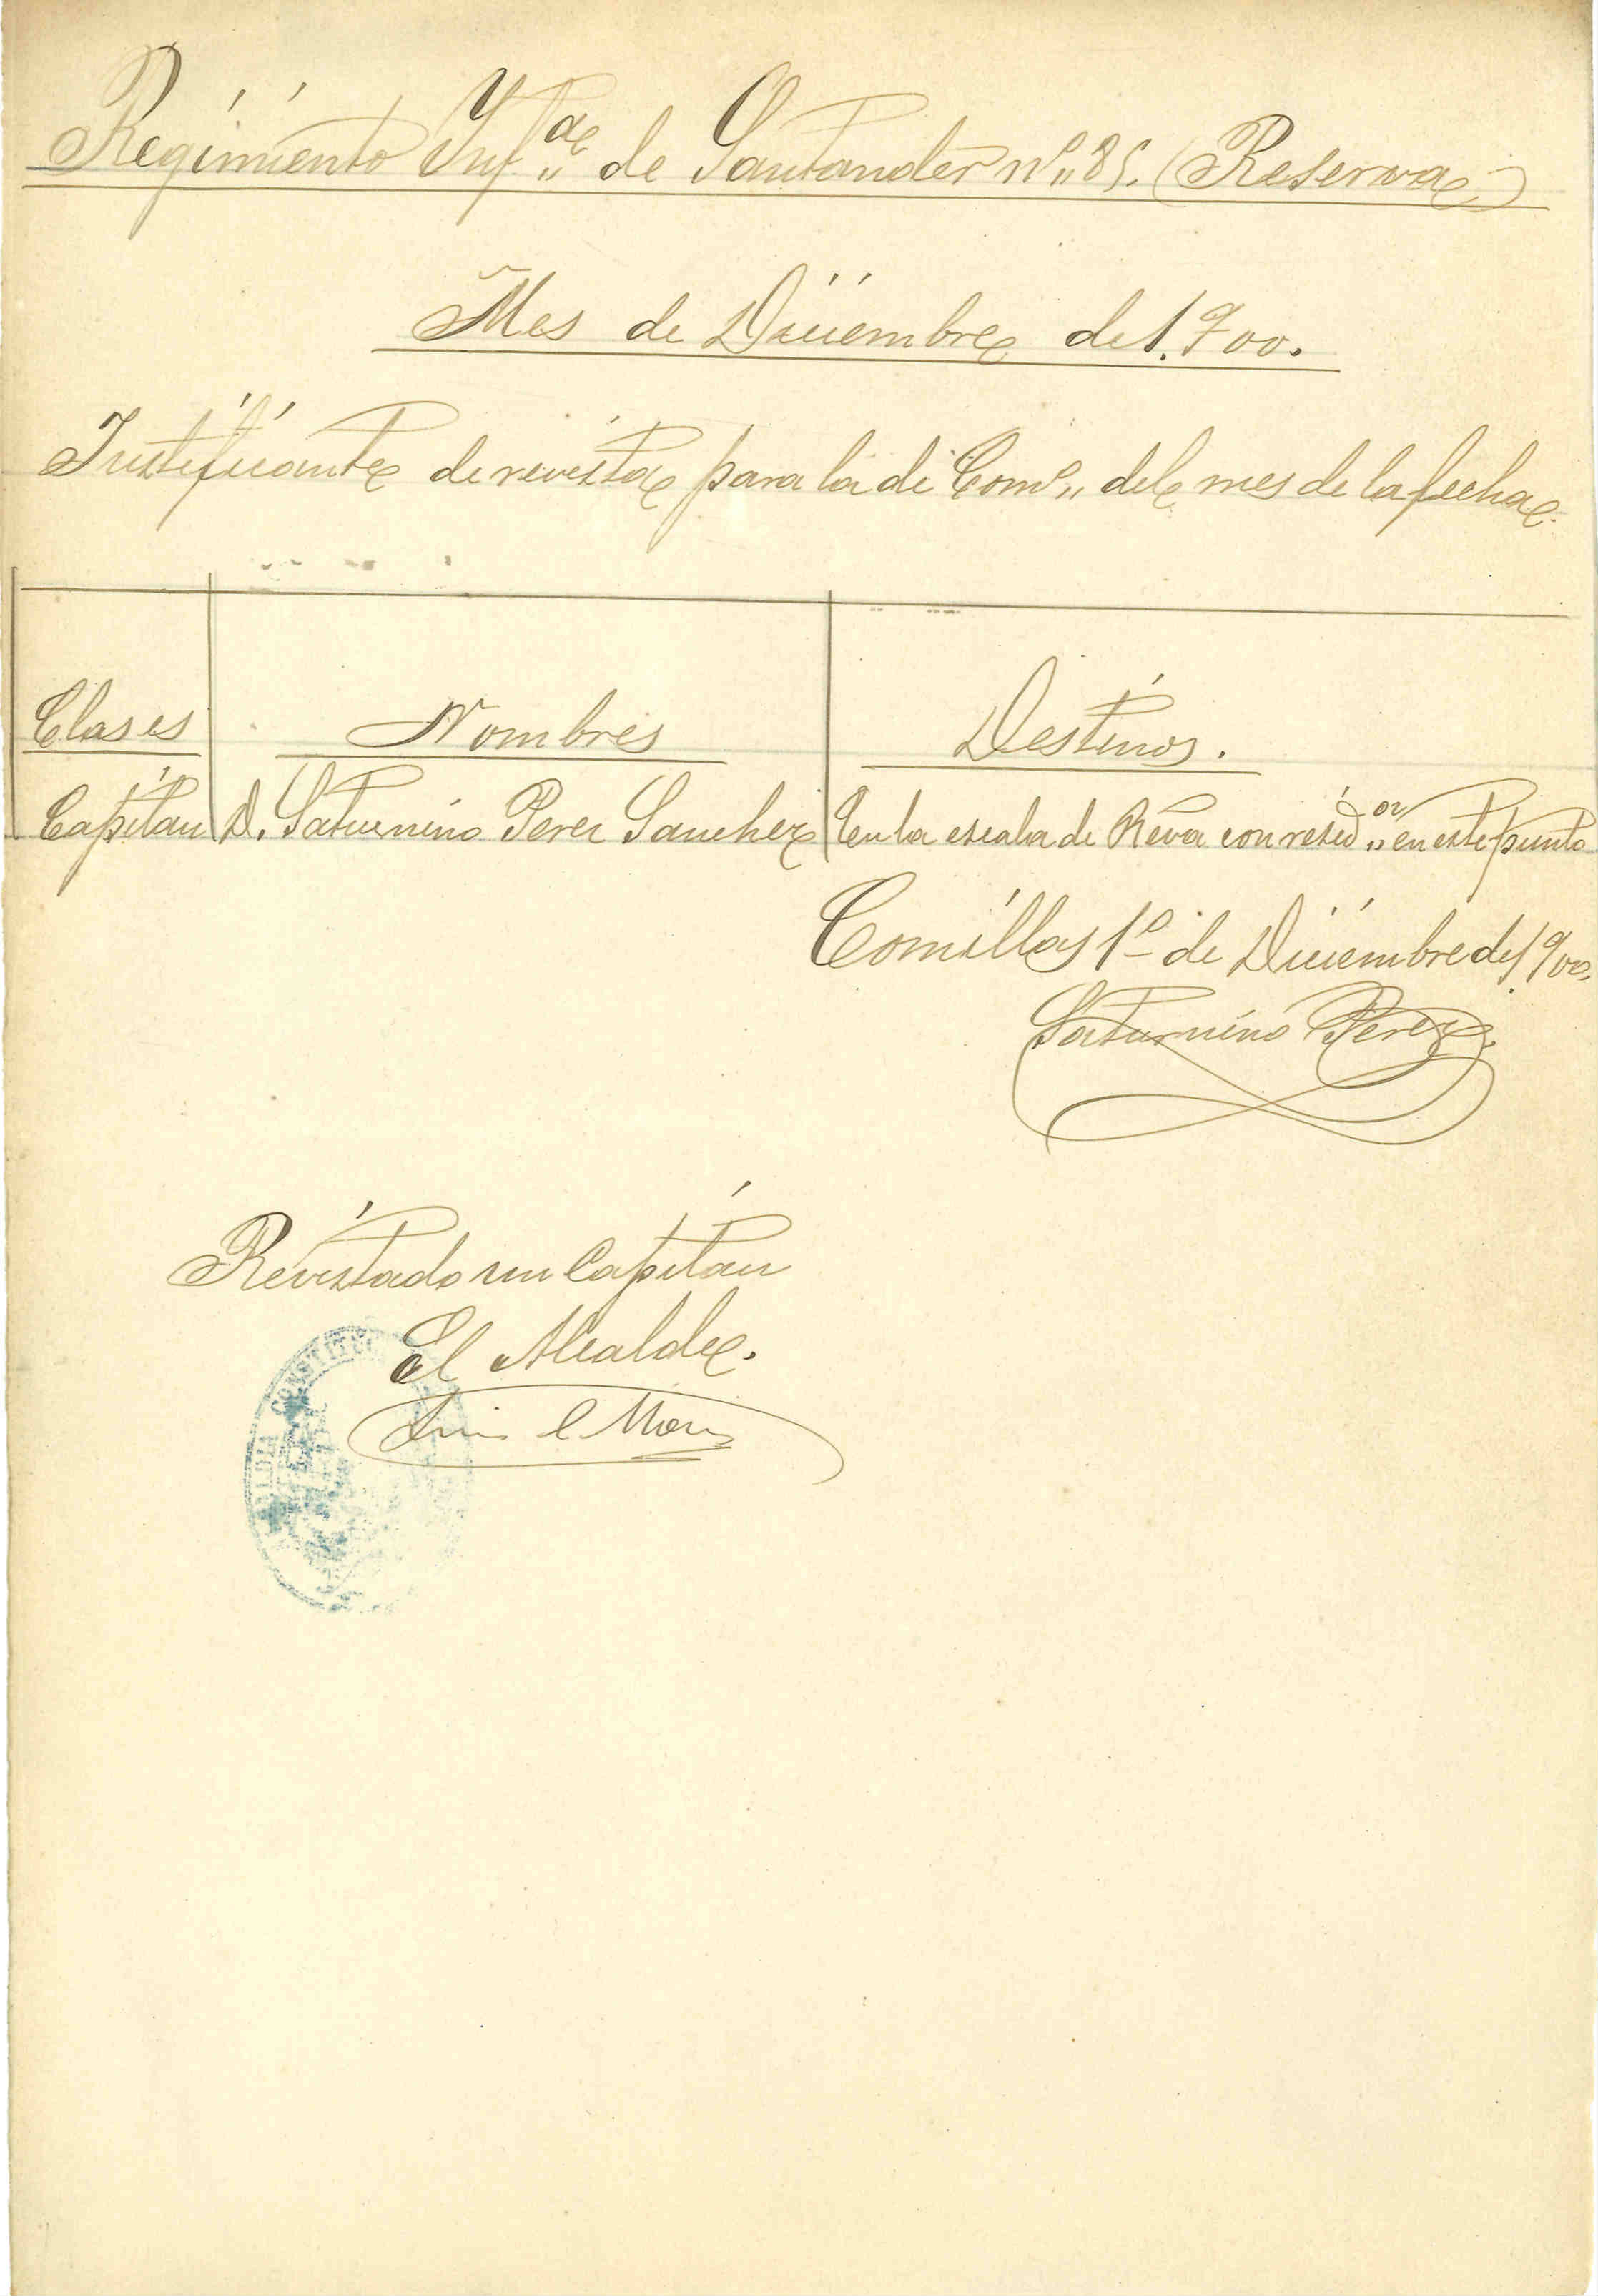 Regimiento Ynf.ª de Santander nº 85. (Reserva)
Mes de Diciembre de 1.900.
Justificante de revista para la de Comº del mes de la fecha.
Clases Nombres Destinos.
Capitan D. Saturnino Perez Sanchez En la escala de Rêva con resid.ª en este punto
Comillas 1º de Diciembre de 1.900.
Saturnino Perez.
Revistado un Capitan
El Alcalde.
CONSTITU